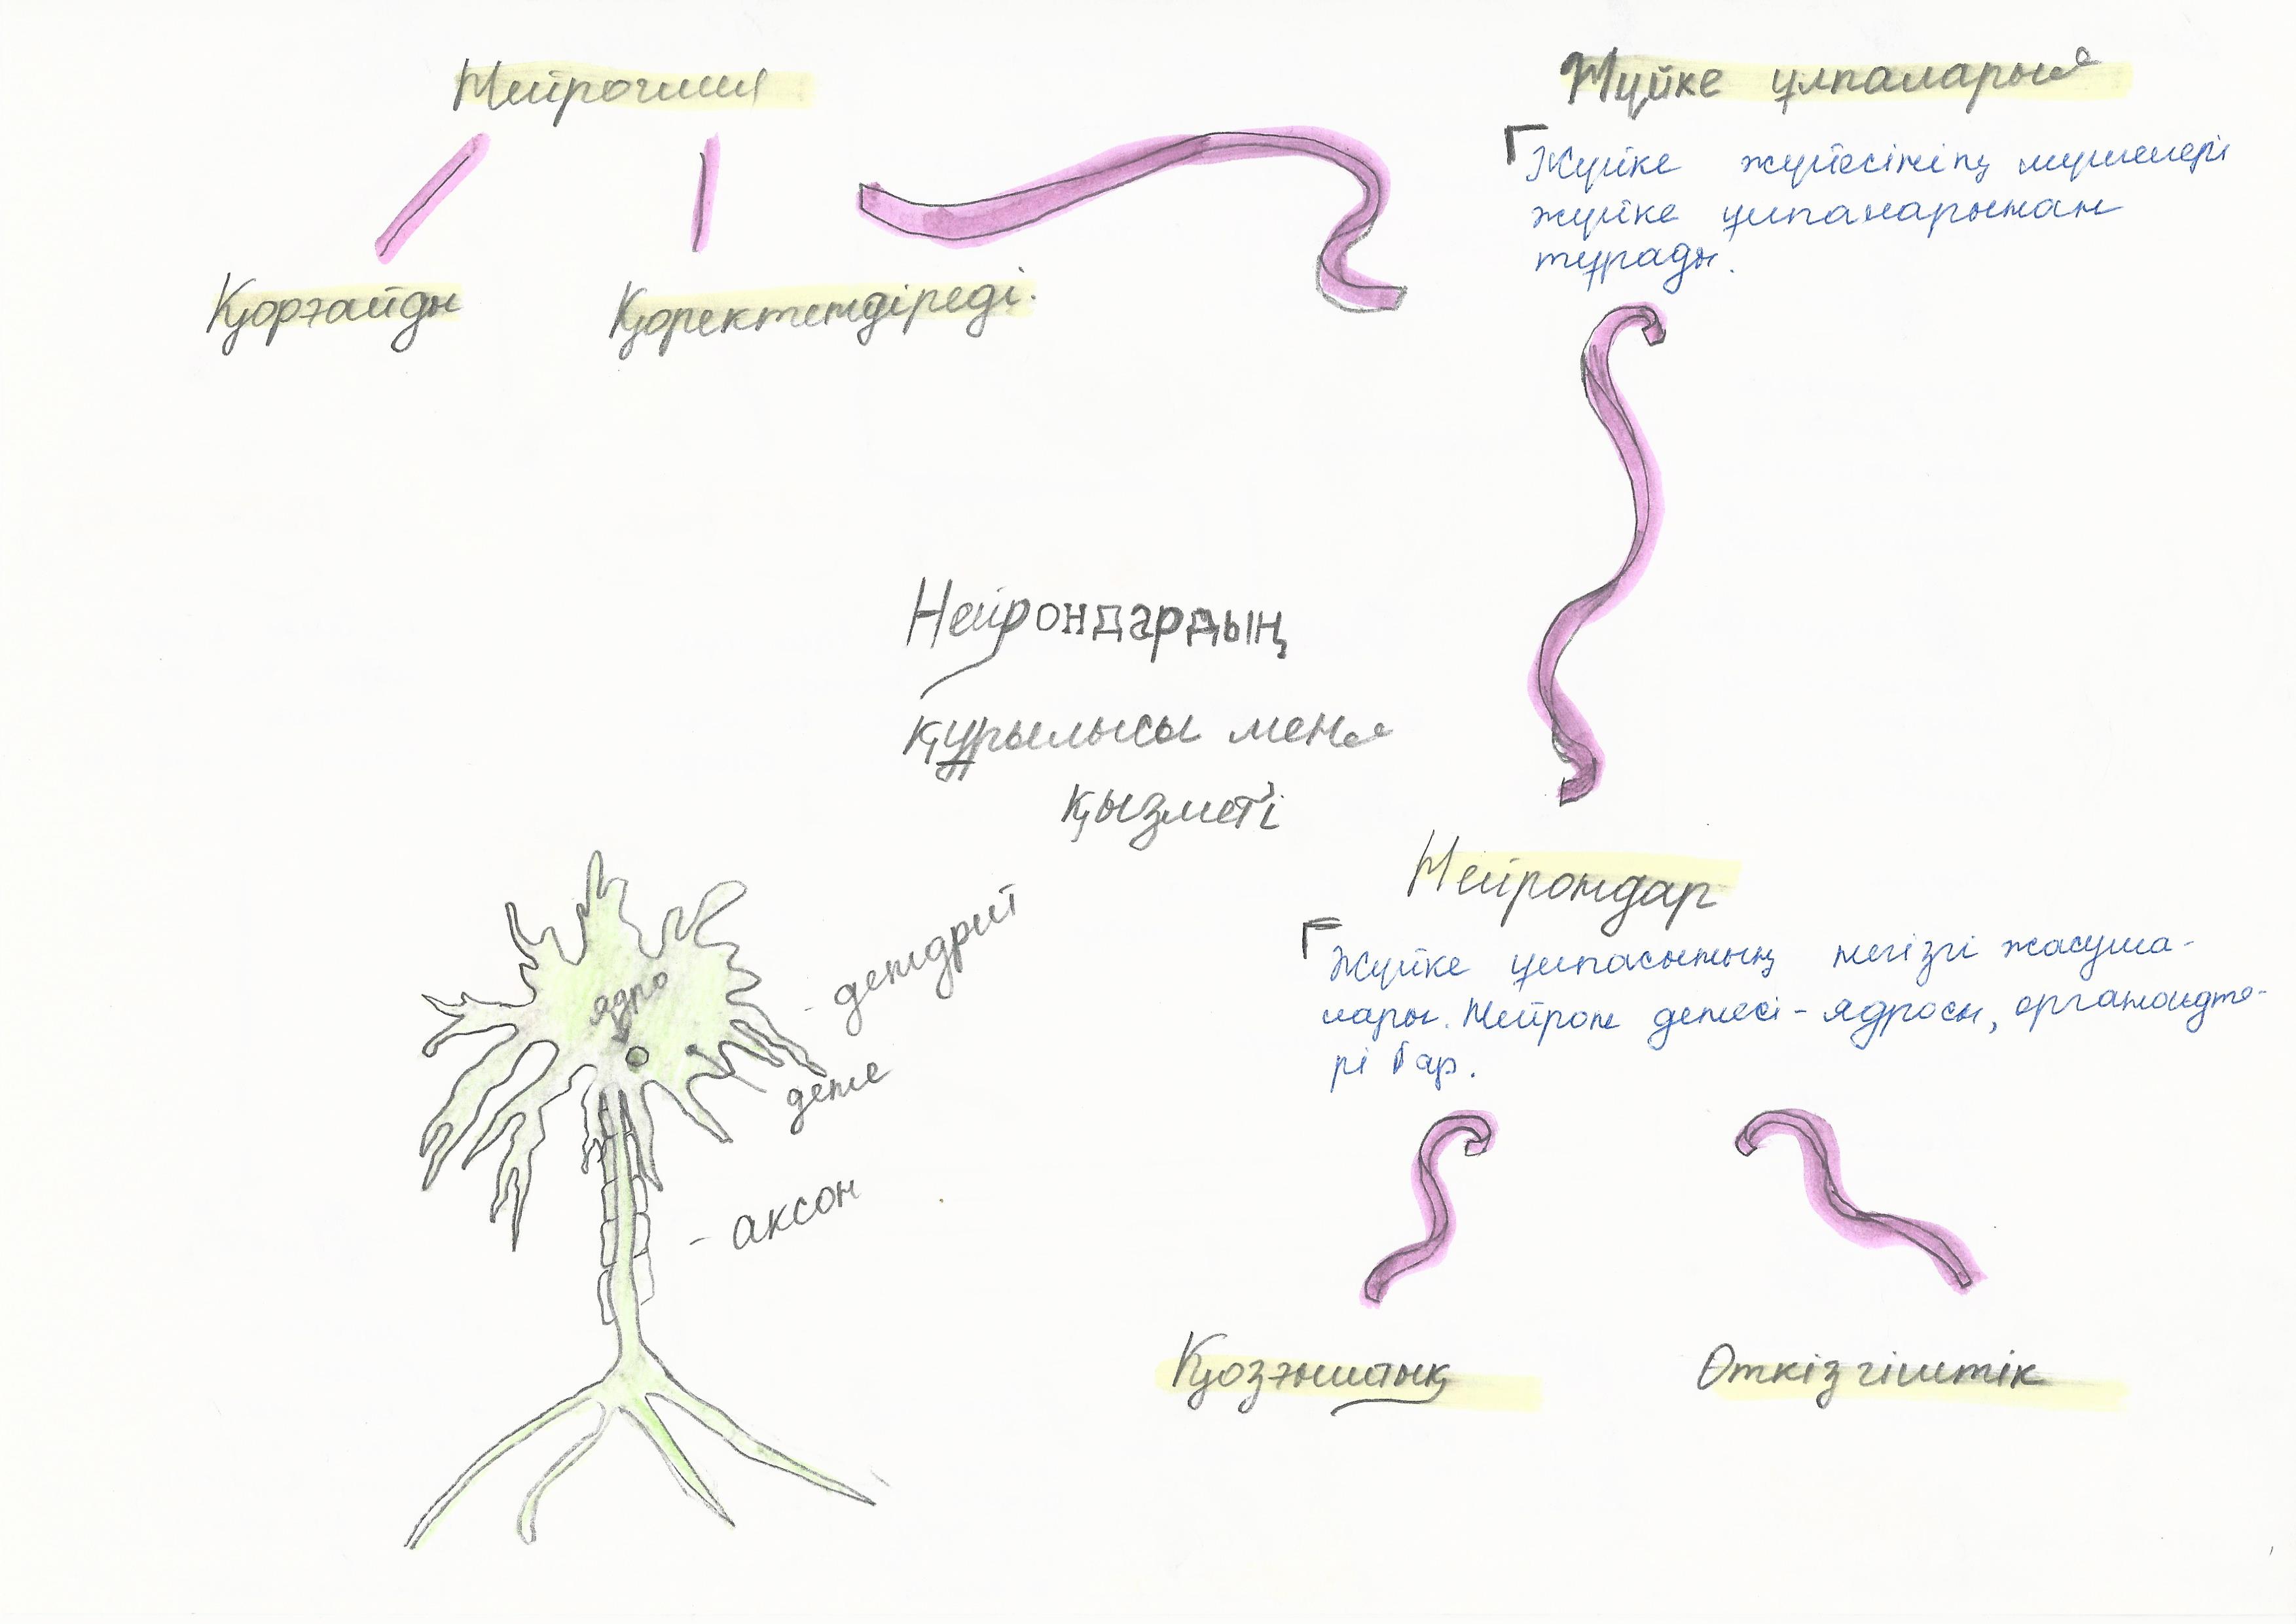 Нейроглия
Жүйке ұлпалары
Жүйке жүйесінің мүшелері
жүйке ұлпаларынан
тұрады.
Қорғайды
Қоректендіреді.
Нейрондардың
құрылысы мен
қызметі
Нейрондар
Жүйке ұлпасының негізгі жасуша-
лары. Нейрон денесі - ядросы, органоидте-
рі бар.
- дендрит
ядро
дене
- аксон
Қозғыштық
Өткізгіштік